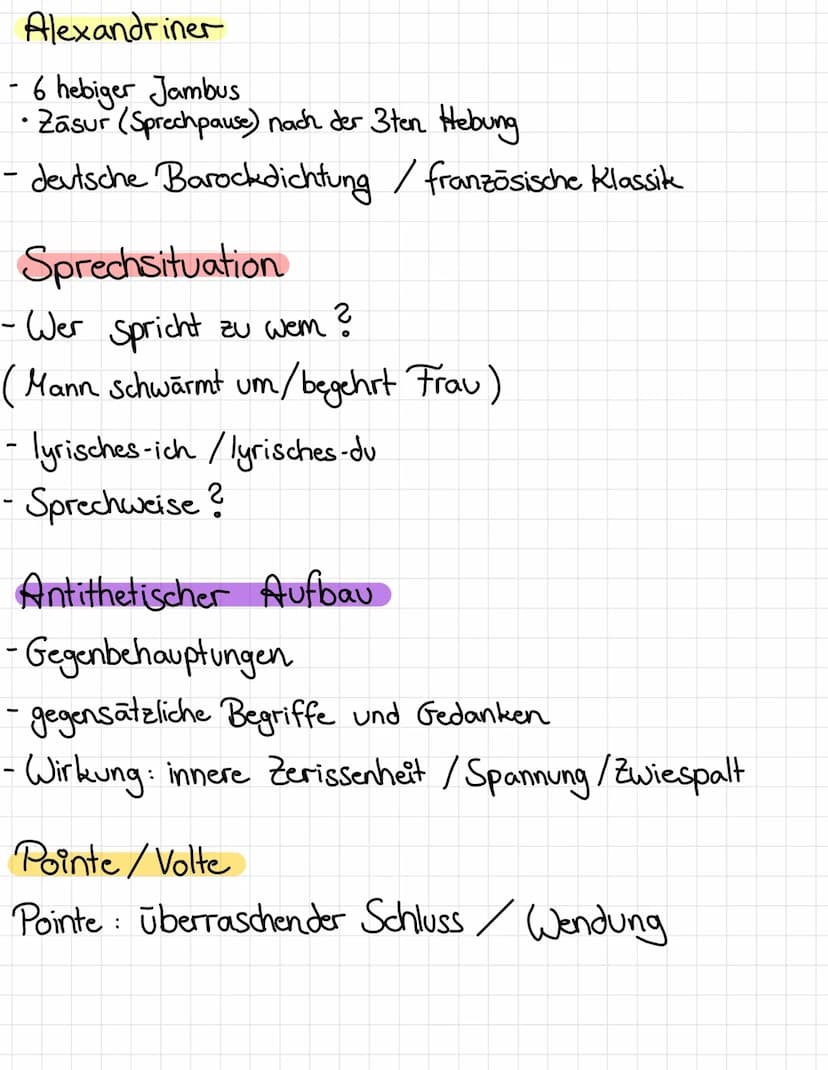 Alexandriner
- 6 hebiger Jambus
• Zäsur (Sprechpause) nach der 3ten Hebung
- deutsche Barockdichtung / französische Klassik
Sprechsituation
- Wer spricht zu wem?
(Mann schwärmt um/begehrt Frau)
- lyrisches-ich / lyrisches-du
- Sprechweise?
Antithetischer Aufbau
- Gegenbehauptungen
- gegensätzliche Begriffe und Gedanken
- Wirkung: innere Zerissenheit / Spannung / Zwiespalt
Pointe / Volte
Pointe: überraschender Schluss / Wendung